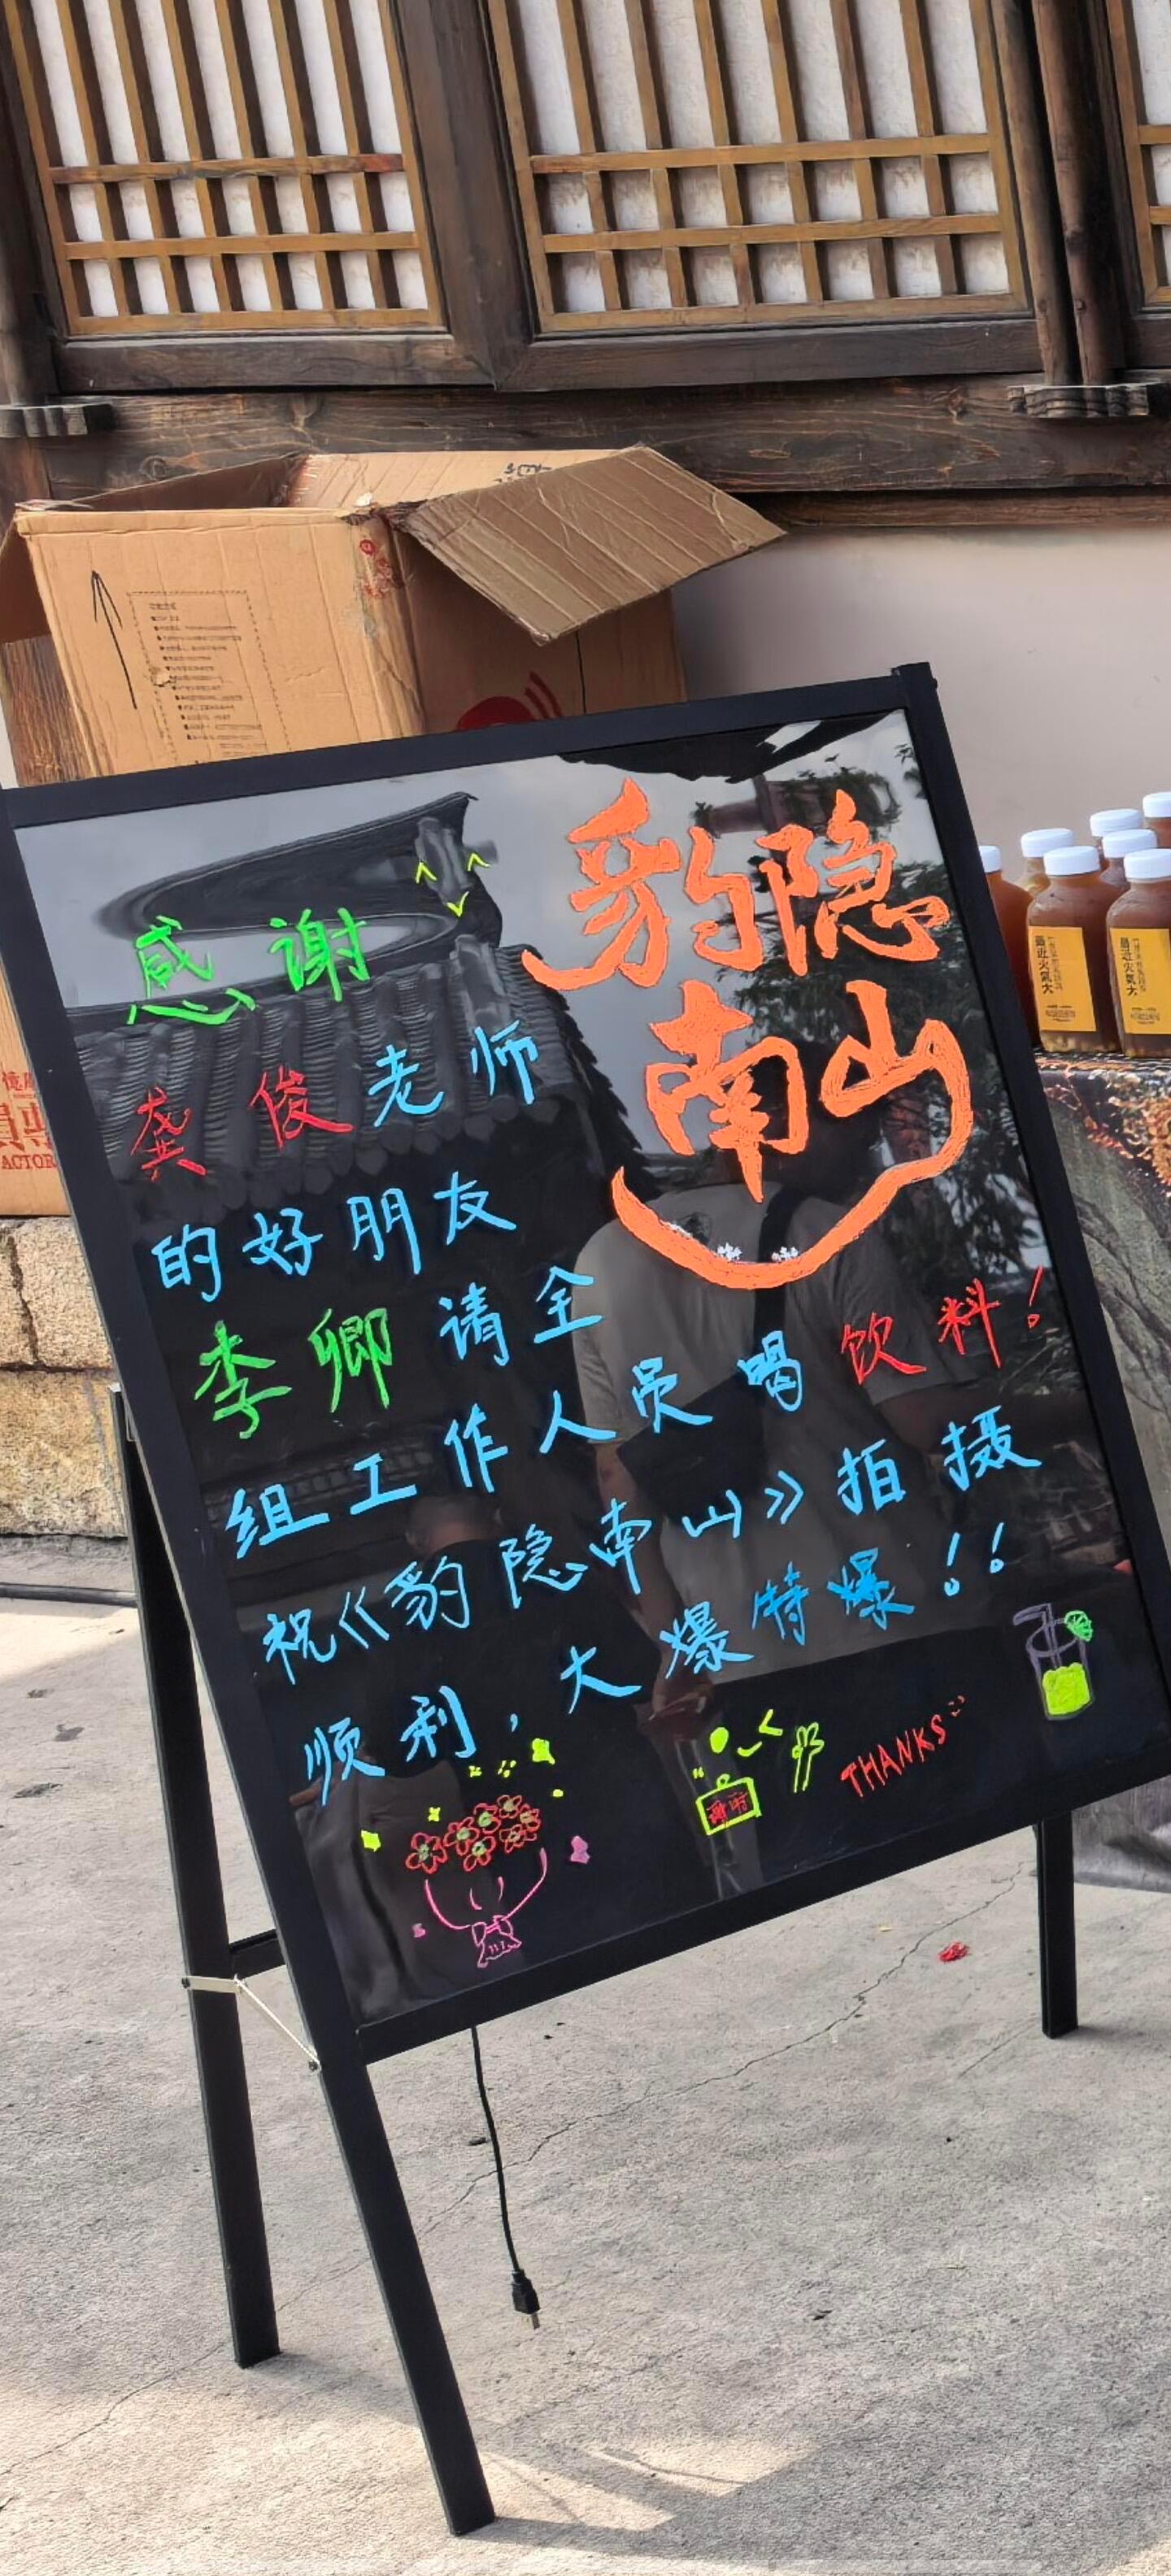 豹隐
南山
感谢
龚俊老师
的好朋友
李卿请全
组工作人员喝饮料！
祝《豹隐南山》拍摄
顺利，大爆特爆！！
THANKS
最近火氣大
最近火氣大
ACTOR